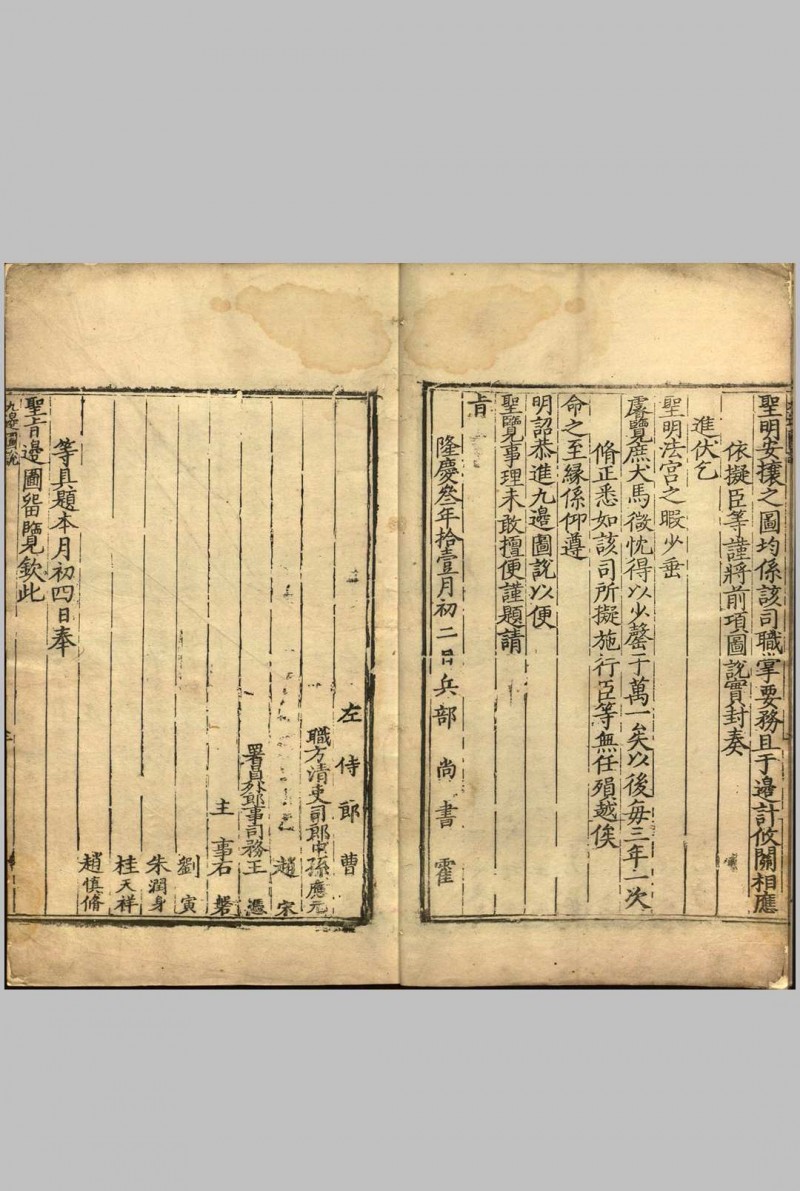 聖明安攘之圖均係該司職掌要務且于邊計攸關相應
依擬臣等謹將前項圖說實封奏
進伏乞
聖明法宮之暇少垂
睿覽庶犬馬微忱得以少罄于萬一矣以後每三年一次
脩正悉如該司所擬施行臣等無任殞越俟
命之至緣係仰遵
明詔恭進九邊圖說以便
聖覽事理未敢擅便謹題請
旨
隆慶叁年拾壹月初二日兵部尚書霍
左侍郎曹
職方清吏司郎中孫應元
趙宋
署員外郎事司務王憑
主事石磐
劉寅
朱潤身
桂天祥
趙慎脩
等具題本月初四日奉
聖旨邊圖留覽欽此
九邊圖說